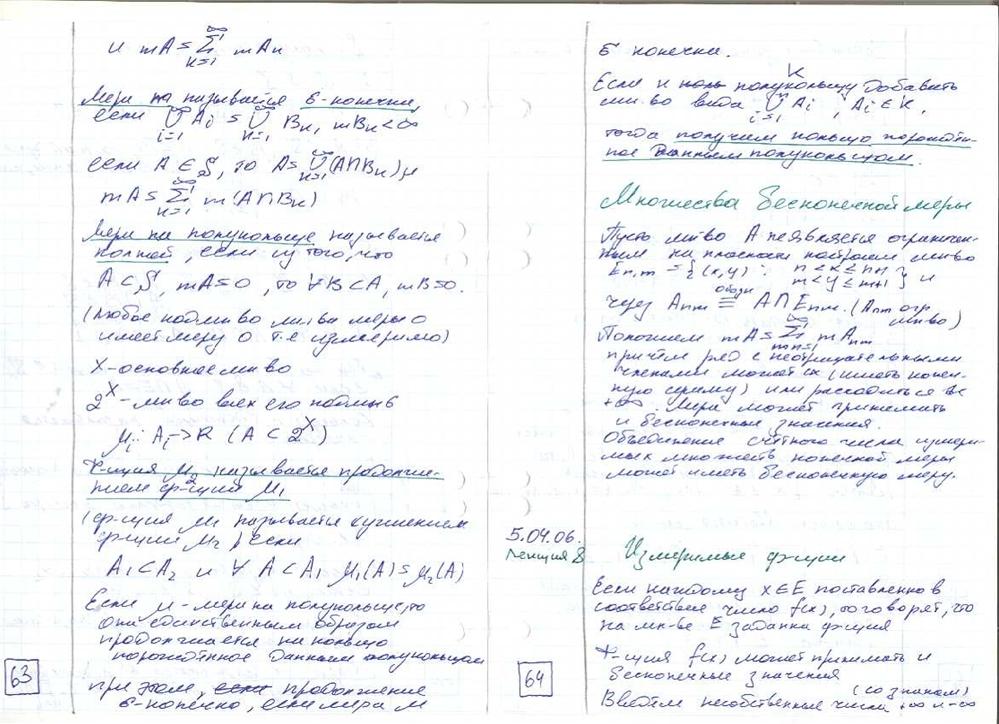 и mA = ∞Σn=1 mAn
Мера m называется σ-конечн,
если ∞∪i=1 Ai = ∞∪n=1 Bn, mBn<∞
если A ∈ S, то A = ∞∪n=1 (A∩Bn) и
mA = ∞Σn=1 m(A∩Bn)
Мера на полукольце называется
полной, если из того, что
A ⊂ S, mA=0, то ∀B⊂A, mB=0.
(любое подмн-во мн-ва меры 0
имеет меру 0 т.е измеримо)
X-основное мн-во
2^X - мн-во всех его подмн-в
μi: Ai -> R (A ⊂ 2^X)
Ф-ция μ2 называется продолже-
нием ф-ции μ1
(ф-ция μ1 называется сужением
ф-ции μ2), если
A1⊂A2 и ∀ A⊂A1 μ1(A)=μ2(A)
Если μ-мера на полукольце, то
она единственным образом
продолжается на кольцо
порождённое данным полукольцом
при этом, если продолжение
σ-конечно, если мера μ
63
σ конечна.
Если к полукольцу добавить
мн-во вида K∪i=1 Ai, Ai∈K,
тогда получим кольцо порождён-
ное данным полукольцом.
Множества бесконечной меры
Пусть мн-во A не является ограничен-
ным на плоскости построим мн-во
En,m = {(x,y): n<x≤n+1 m<y≤m+1} и
через Anm обозн ≡ A∩Enm. (Anm огр мн-во)
Положим mA = ∞Σm,n=1 mAnm
причём ряд с неотрицательными
членами может сх (иметь конеч-
ную сумму) или расходиться к
+∞. Мера может принимать
и бесконечные значения.
Объединение счётного числа измери-
мых множеств конечной меры
может иметь бесконечную меру.
5.04.06.
Лекция 8
Измеримые ф-ции
Если каждому x∈E поставлено в
соответствие число f(x), то говорят, что
на мн-ве E задана ф-ция
Ф-ция f(x) может принимать и
бесконечные значения
(со знаком)
Введём несобственные числа +∞ и -∞
64